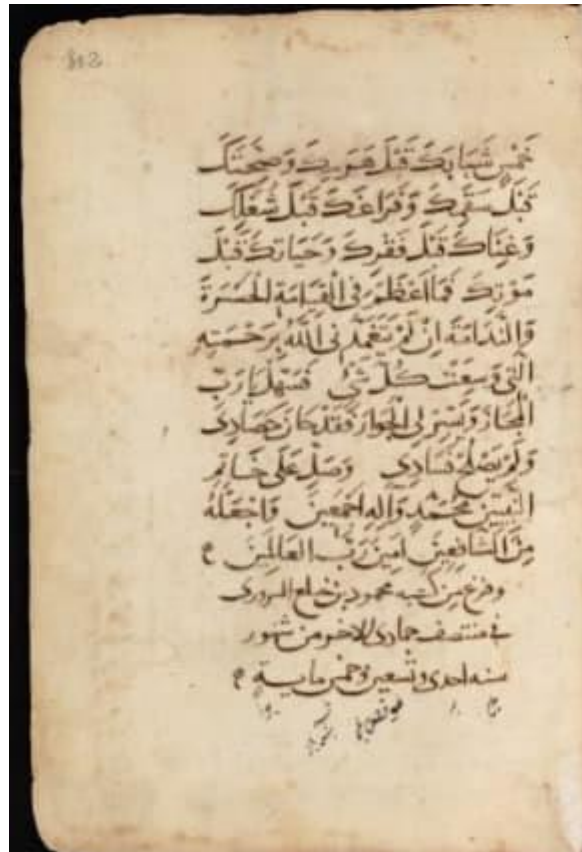 خَمْسٍ شَبَابَكَ قَبْلَ هَرَمِكَ وَصِحَّتَكَ
قَبْلَ سَقَمِكَ وَفَرَاغَكَ قَبْلَ شُغْلِكَ
وَغِنَاكَ قَبْلَ فَقْرِكَ وَحَيَاتَكَ قَبْلَ
مَوْتِكَ فَمَا اَعْظَمَ فِى الْقِيَامَةِ الْحَسْرَةَ
وَالنَّدَامَةَ اِنْ لَمْ يَتَغَمَّدْنِى اللّٰهُ بِرَحْمَتِهِ
الَّتِى وَسِعَتْ كُلَّ شَىْءٍ فَسَهِّلْ يَا رَبِّ
الْمَجَازَ وَيَسِّرْ لِى الْجَوَازَ فَقَدْ حَانَ حَصَادِى
وَلَمْ يَصْلُحْ فَسَادِى وَصَلِّ عَلَى خَاتَمِ
النَّبِيِّينَ مُحَمَّدٍ وَآلِهِ اَجْمَعِينَ وَاجْعَلْهُ
مِنَ الشَّافِعِينَ اٰمِينَ رَبَّ الْعَالَمِينَ
وفرغ من كتبه محمود بن
فى منتصف جمادى الاخر من شهور
سنه احدى وتسعين وخمس ماية